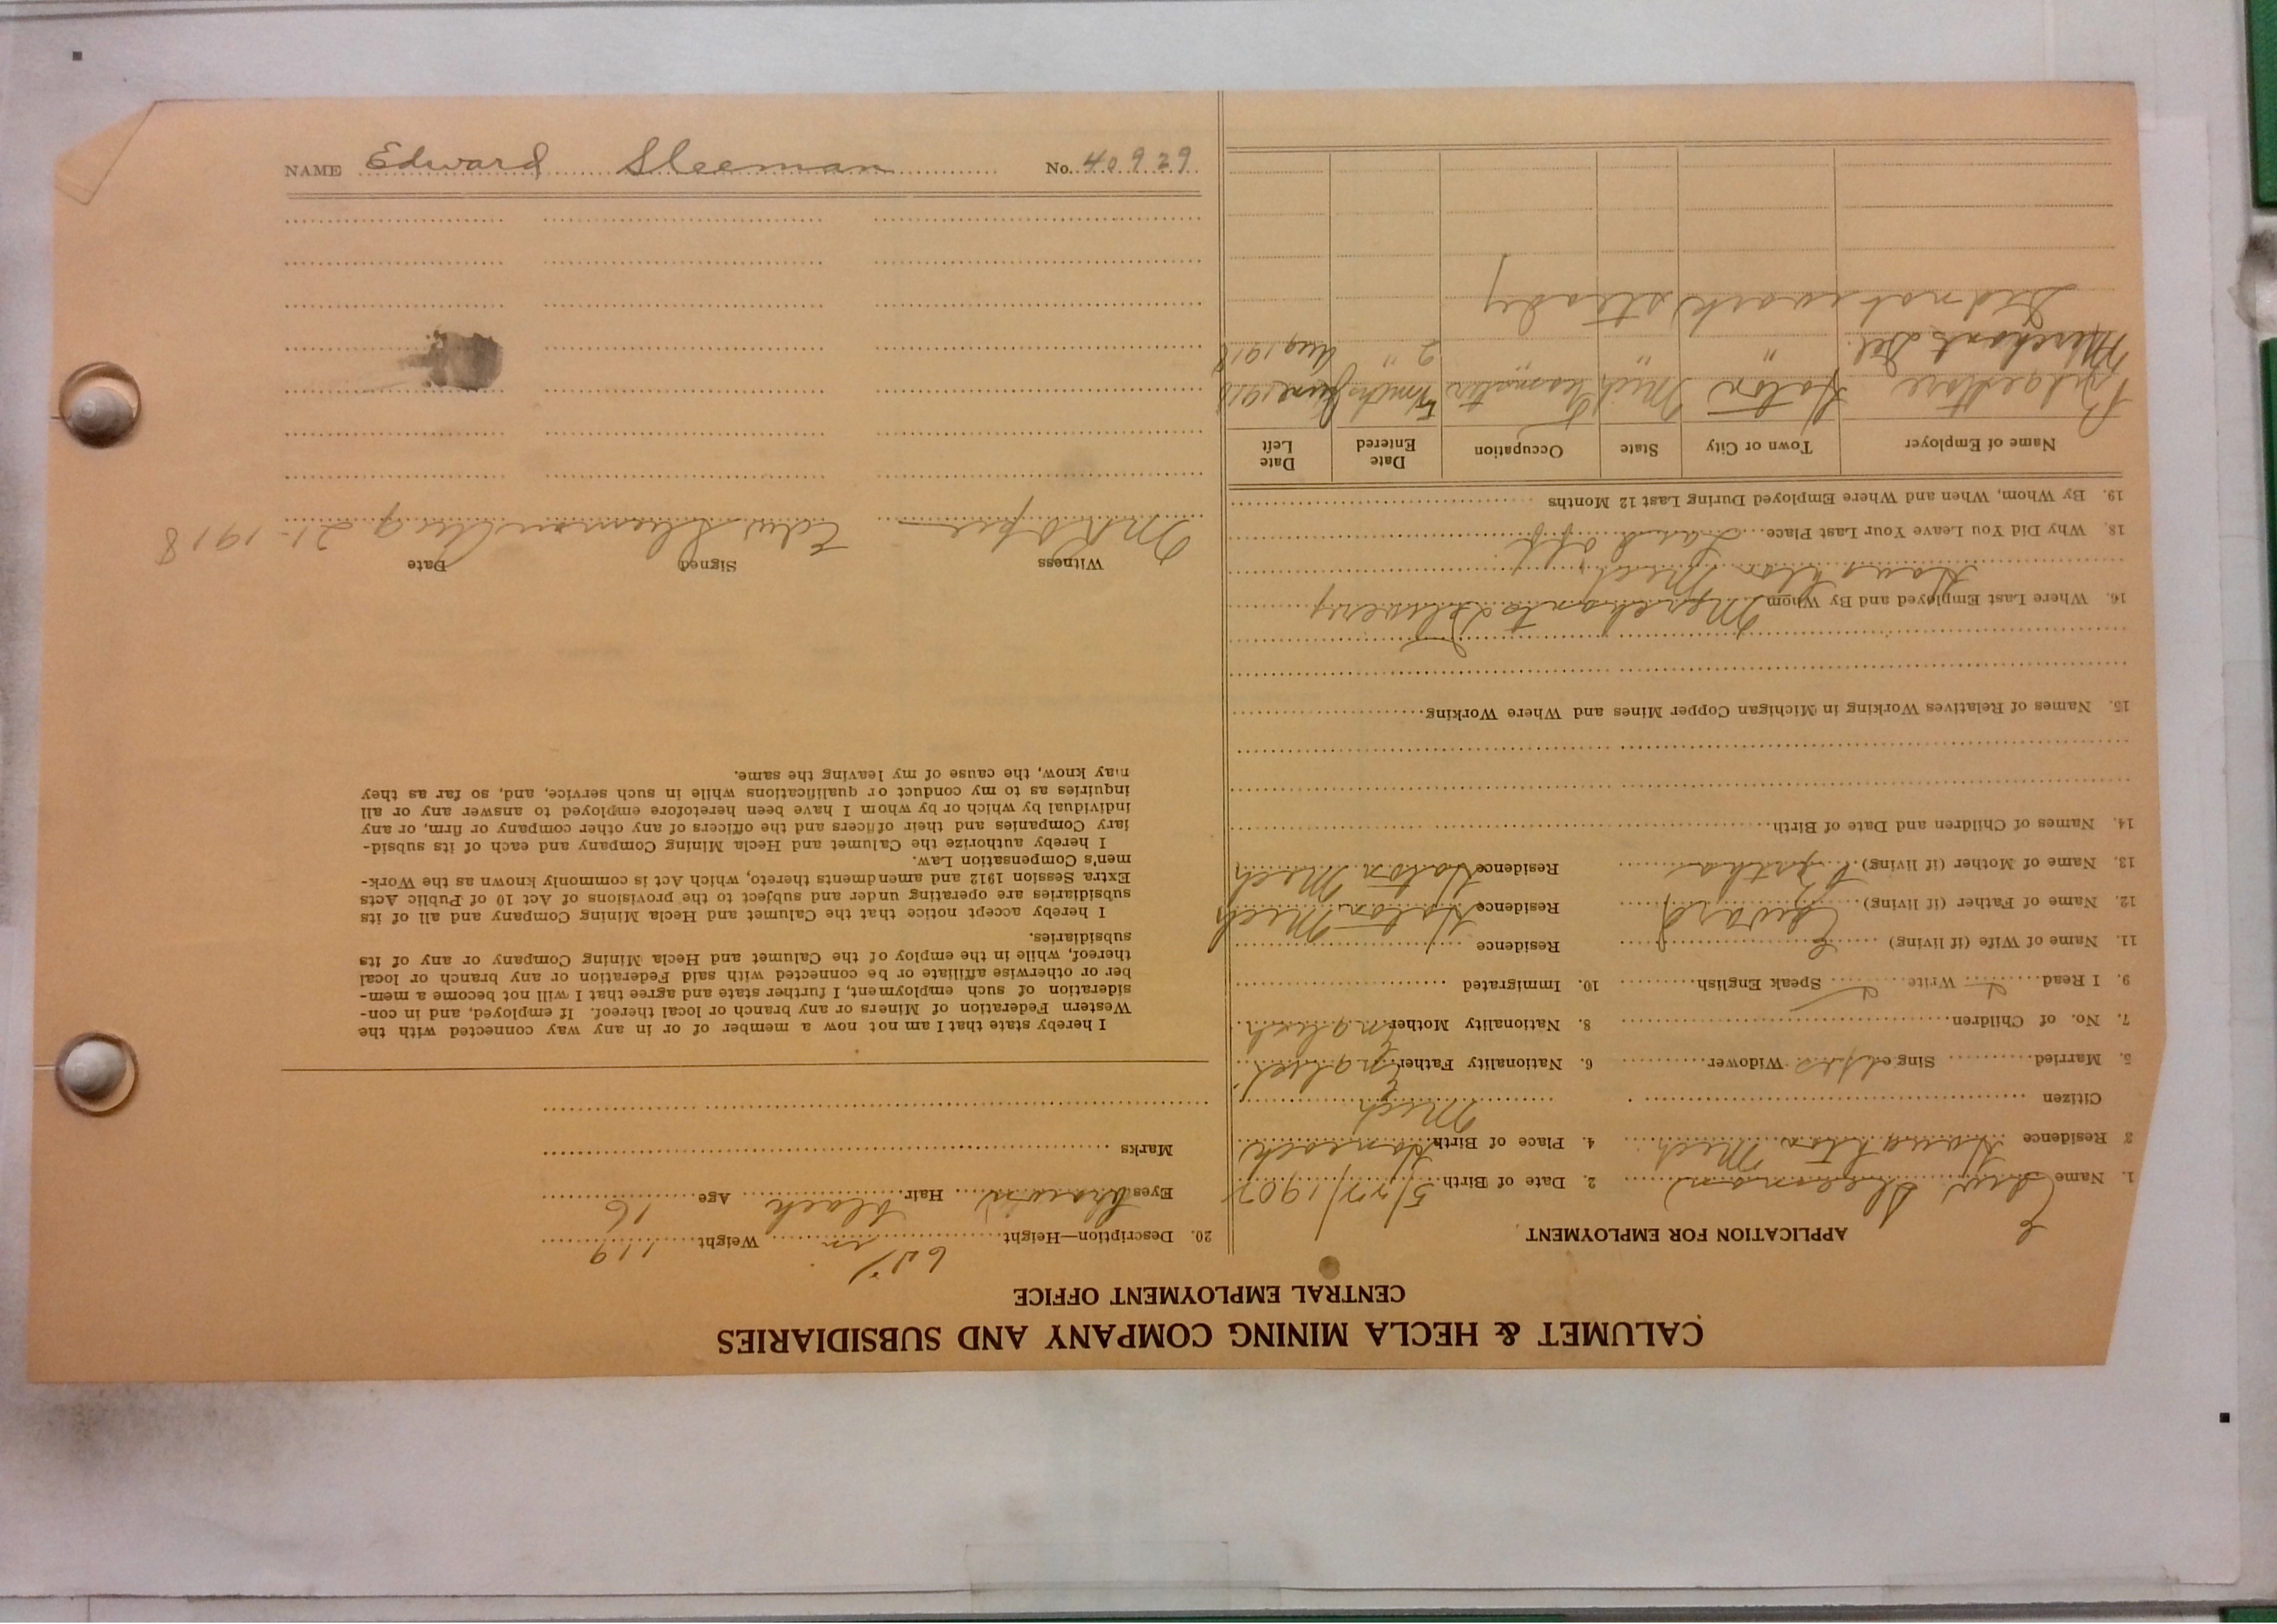 NAME Edward Sleeman No. 40929
CALUMET & HECLA MINING COMPANY AND SUBSIDIARIES
CENTRAL EMPLOYMENT OFFICE
APPLICATION FOR EMPLOYMENT
1. Name Edw Sleeman 2. Date of Birth 5/27/1902
3 Residence Houghton Mich 4. Place of Birth Hancock
Mich
Citizen
5. Married Singed yes Widower 6. Nationality Father English
7. No. of Children 8. Nationality Mother English
9. I Read Write Speak English 10. Immigrated
11. Name of Wife (if living) Residence
12. Name of Father (if living) Edward Residence Hoton Mich
13. Name of Mother (if living) Bertha Residence Hoton Mich
14. Names of Children and Date of Birth
15. Names of Relatives Working in Michigan Copper Mines and Where Working
16. Where Last Employed and By Whom Merchants Delivery
Houghton Mich
18. Why Did You Leave Your Last Place Laid off
19. By Whom, When and Where Employed During Last 12 Months
Name of Employer Town or City State Occupation Date Entered Date Left
Hoton Mich Teamster mths June 1918
Merchants Del. " " " 2 " Aug 1918
Did not work steady
20. Description—Height 65 1/2 in Weight 119
Eyes brown Hair black Age 16
Marks
I hereby state that I am not now a member of or in any way connected with the
Western Federation of Miners or any branch or local thereof. If employed, and in con-
sideration of such employment, I further state and agree that I will not become a mem-
ber or otherwise affiliate or be connected with said Federation or any branch or local
thereof, while in the employ of the Calumet and Hecla Mining Company or any of its
subsidiaries.
I hereby accept notice that the Calumet and Hecla Mining Company and all of its
subsidiaries are operating under and subject to the provisions of Act 10 of Public Acts
Extra Session 1912 and amendments thereto, which Act is commonly known as the Work-
men's Compensation Law.
I hereby authorize the Calumet and Hecla Mining Company and each of its subsid-
iary Companies and their officers and the officers of any other company or firm, or any
individual by which or by whom I have been heretofore employed to answer any or all
inquiries as to my conduct or qualifications while in such service, and, so far as they
may know, the cause of my leaving the same.
Witness Signed Date
Edw Sleeman Aug 21 - 1918